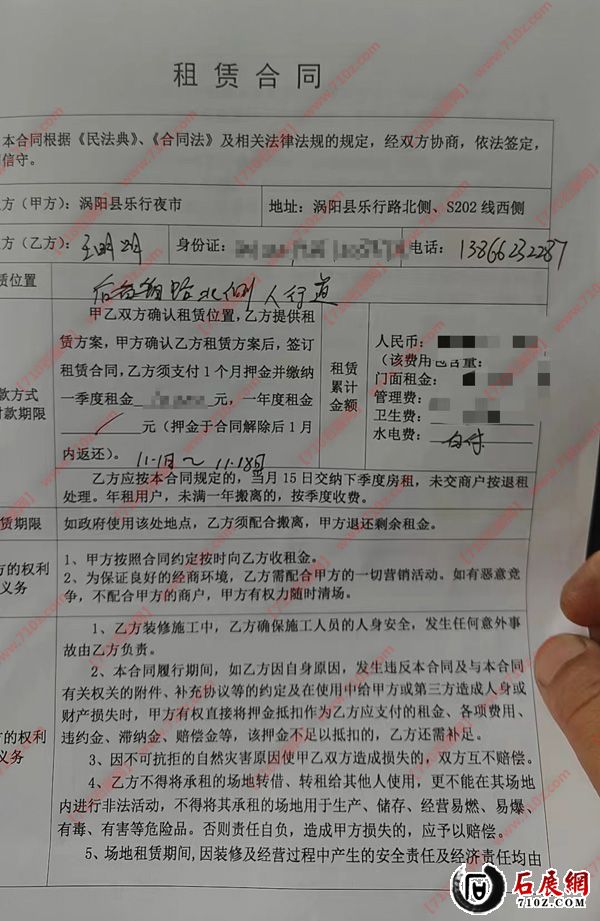 租赁合同
本合同根据《民法典》、《合同法》及相关法律法规的规定，经双方协商，依法签定，
信守。
方（甲方）：涡阳县乐行夜市 地址：涡阳县乐行路北侧、S202 线西侧
方（乙方）： 身份证： 电话：13866232287
赁位置 路北侧人行道
甲乙双方确认租赁位置，乙方提供租
赁方案，甲方确认乙方租赁方案后，签订
租赁合同，乙方须支付 1 个月押金并缴纳
一季度租金 元，一年度租金
元（押金于合同解除后 1 月
内返还）。11.1日～11.18日
款方式
付款期限
租赁
累计
金额
人民币：
（该费用包含量：
门面租金：
管理费：
卫生费：
水电费：自付
乙方应按本合同规定的，当月 15 日交纳下季度房租，未交商户按退租
处理。年租用户，未满一年搬离的，按季度收费。
赁期限 如政府使用该处地点，乙方须配合搬离，甲方退还剩余租金。
方的权利
义务
1、甲方按照合同约定按时向乙方收租金。
2、为保证良好的经商环境，乙方需配合甲方的一切营销活动。如有恶意竞
争，不配合甲方的商户，甲方有权力随时清场。
方的权利
义务
1、乙方装修施工中，乙方确保施工人员的人身安全，发生任何意外事
故由乙方负责。
2、本合同履行期间，如乙方因自身原因，发生违反本合同及与本合同
有关权关的附件、补充协议等的约定及在使用中给甲方或第三方造成人身或
财产损失时，甲方有权直接将押金抵扣作为乙方应支付的租金、各项费用、
违约金、滞纳金、赔偿金等，该押金不足以抵扣的，乙方还需补足。
3、因不可抗拒的自然灾害原因使甲乙双方造成损失的，双方互不赔偿。
4、乙方不得将承租的场地转借、转租给其他人使用，更不能在其场地
内进行非法活动，不得将其承租的场地用于生产、储存、经营易燃、易爆、
有毒、有害等危险品。否则责任自负，造成甲方损失的，应予以赔偿。
5、场地租赁期间，因装修及经营过程中产生的安全责任及经济责任均由
石展網
710z.com